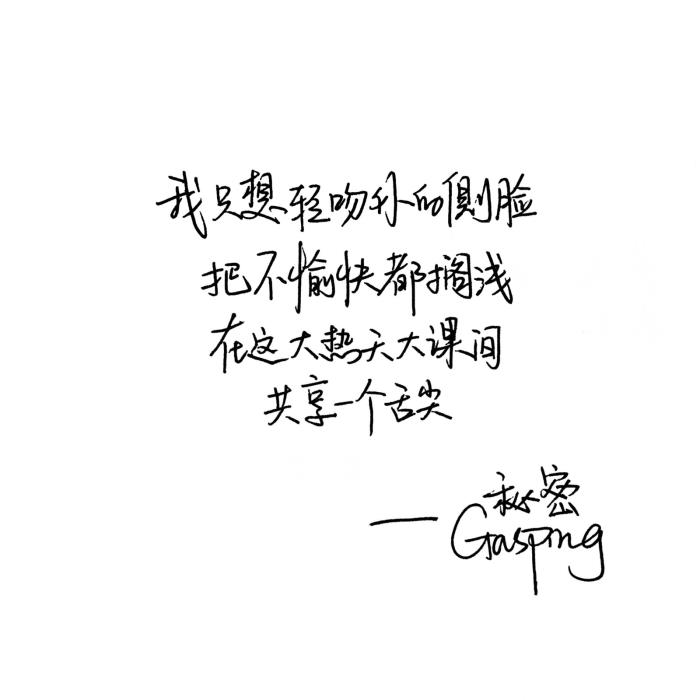 我只想轻吻你的侧脸
把不愉快都搁浅
在这大热天大课间
共享一个舌尖
— 秘密
Gasping